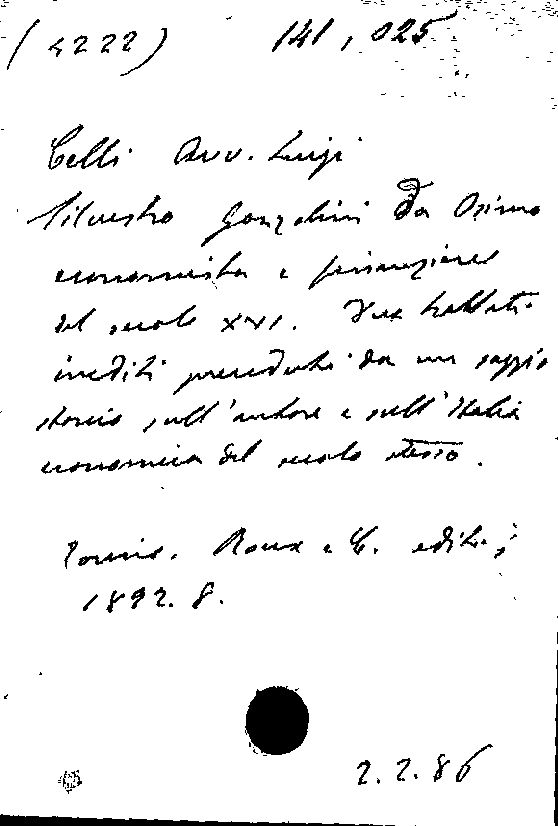 (4222) 141,025
Celli Avv. Luigi
Silvestro Gozzolini da Osimo
economista e finanziere
del secolo XVI. Due trattati
inediti preceduti da un saggio
storico sull'autore e sull'Italia
economica del secolo stesso.
Torino. Roux e C. editori
1892. 8.
2.2.86